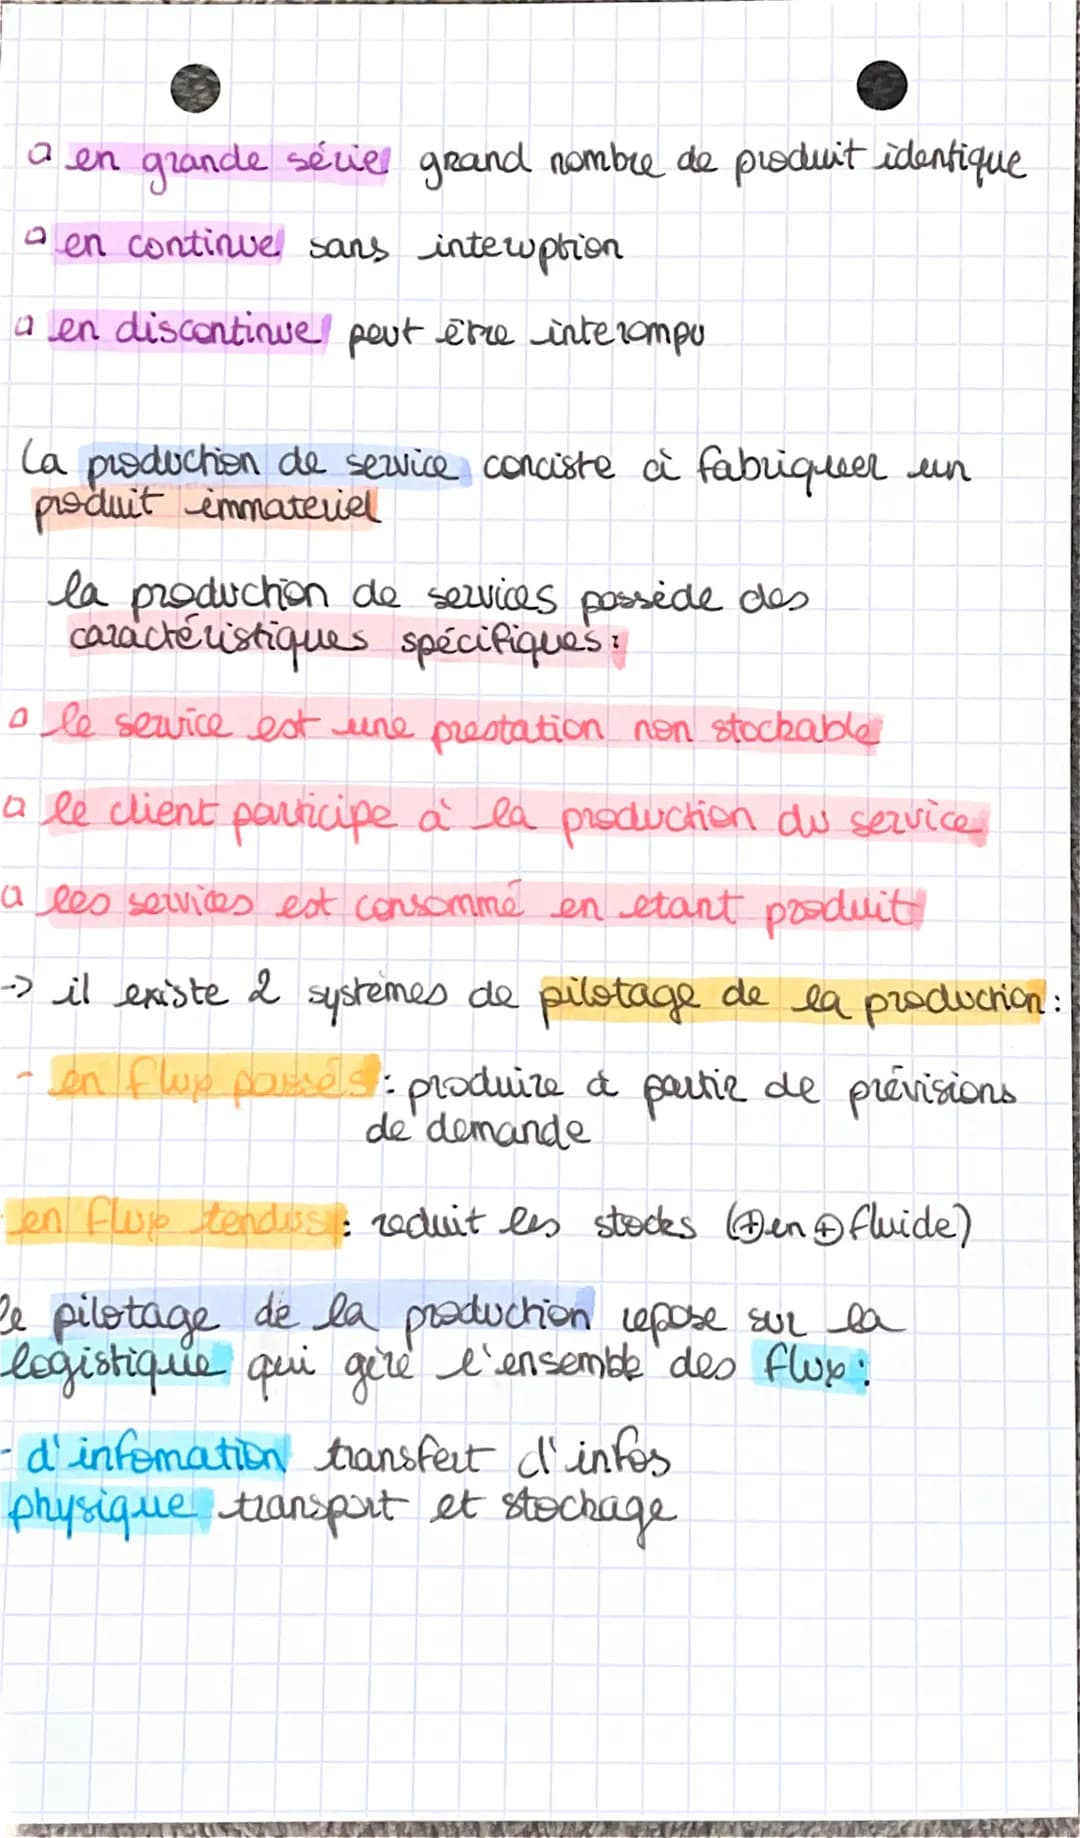 en grande série grand nombre de produit identique
en continue sans interruption
en discontinue peut être interompu
la production de service conciste à fabriquer un
produit immateriel
la production de services possède des
caractéristiques spécifiques:
le service est une prestation non stockable
le client participe à la production du service
les services est consommé en etant produit
-> il existe 2 systèmes de pilotage de la production:
- en flux poussés: produire à partir de prévisions
de demande
en flux tendus: reduit les stocks (⊕ en ⊕ fluide)
le pilotage de la production repose sur la
logistique qui gère l'ensemble des flux:
- d'infomation transfert d'infos
physique transport et stockage